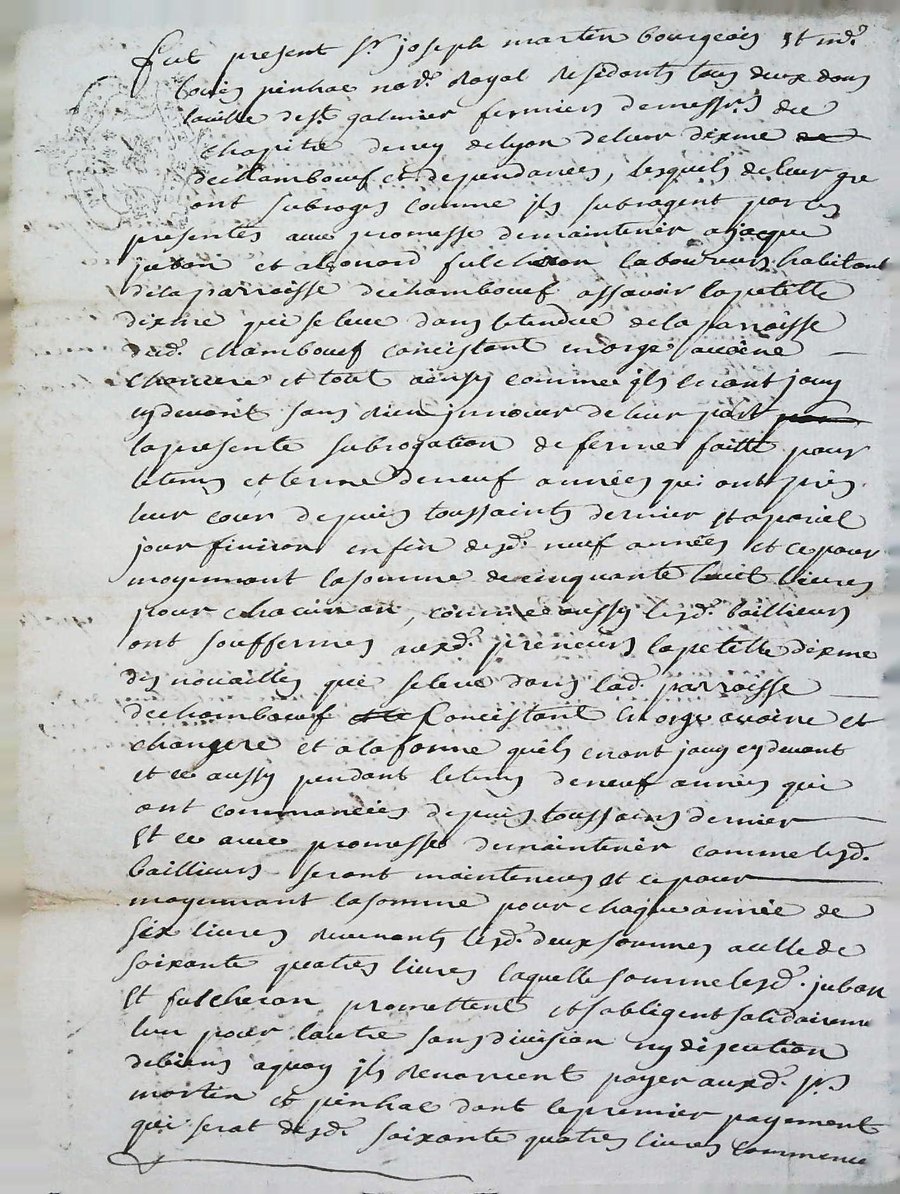 fut present Sr joseph martin bourgeois et md.
Louis pinhac nore. Royal Residants tous deux dans
laville de st galmier fermiers demessrs du
chapitre deney delyon deleur dixme
dechambœuf et dependances, lesquels de leur gre
ont subroges comme jls subrogent par ces
presentes avec promesse demaintenir a jacque
juban et aleonard fulcheron laboureurs habitant
delaparroisse dechambœuf assavoir lapetitte
dixme qui seleve dans letendue delaparroisse
dud. chambœuf concistant en orge avoine
chanvre et tout ainsy comme jls en ont jouy
cydevant sans rien jnnover de leur part
lapresente subrogation de ferme faitte pour
letems et terme deneuf années qui ont pris
leur cour depuis toussaints dernier et apareil
jour finiron en fin desd. neuf années et ce pour
moyennant lasomme de cinquante huit livres
pour chacun an, comme aussy lesd. baillieurs
ont souffermes auxd. preneurs lapetitte dixme
des novailles que seleve dans lad. parroisse
dechambœuf concistant en orge avoine et
chanvre et a laforme quils en ont jouy cydevant
et ce aussy pendant letems deneuf années qui
ont commancées depuis toussains dernier
Et ce avec promesse demaintenir comme lesd.
baillieurs seront maintenus et ce pour
moyennant lasomme pour chaque année de
six livres revenants lesd. deux sommes acelle de
soixante quatres livres laquelle somme lesd. juban
Et fulcheron promettent et sobligent solidaireme
lun pour lautre sans division ny discution
debiens aquoy jls renoncent payer auxd. srs
martin et pinhac dont le premier payement
qui serat desd. soixante quatres livres commence